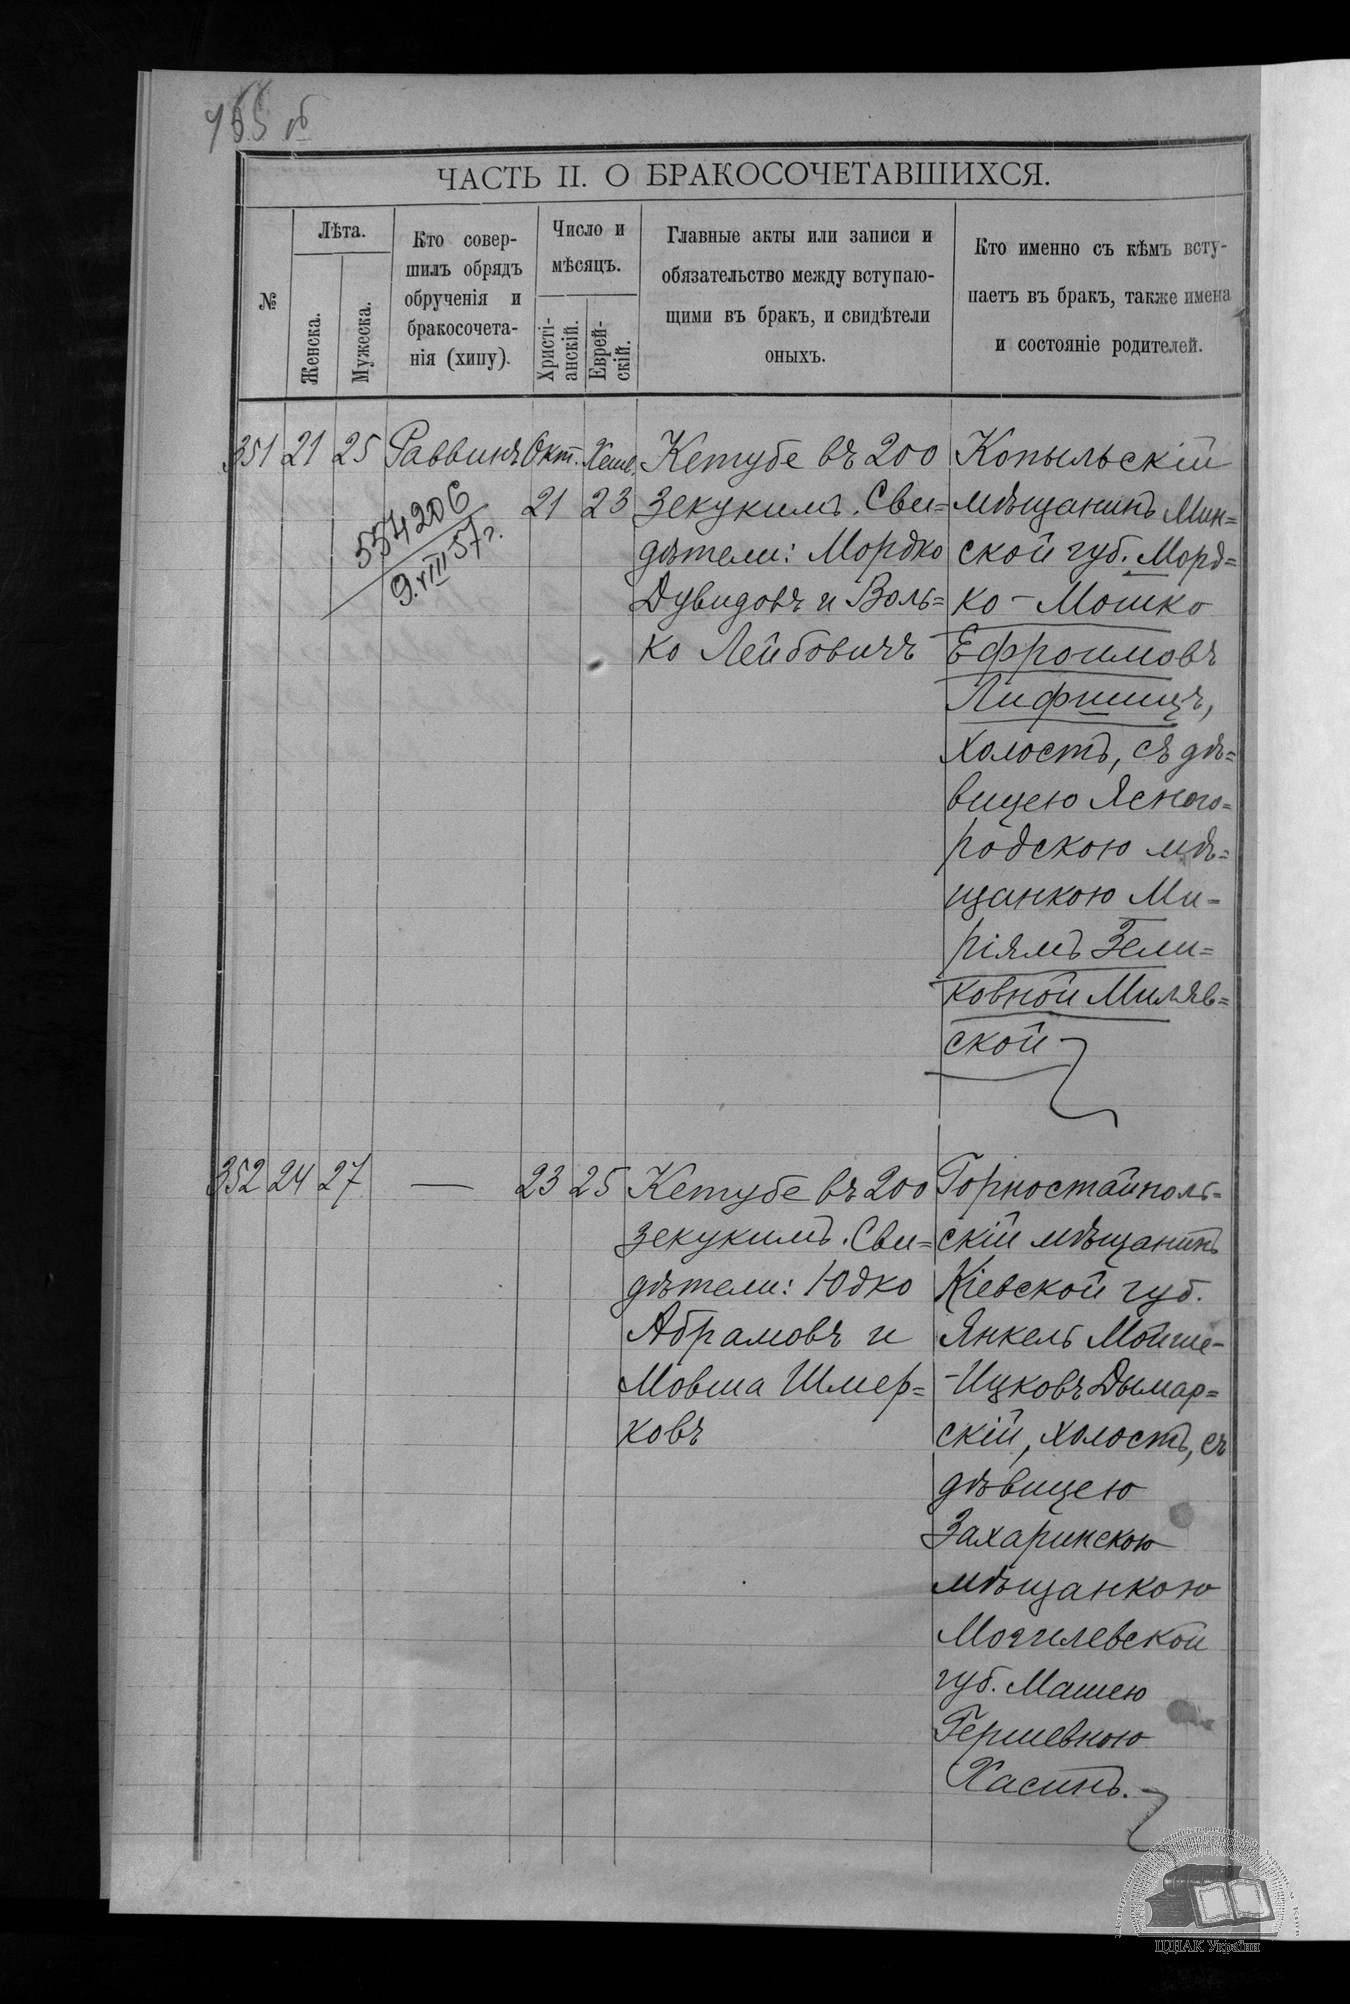 ЧАСТЬ II. О БРАКОСОЧЕТАВШИХСЯ.
№
Лѣта.
Женска.
Мужеска.
Кто совер-
шилъ обрядъ
обрученія и
бракосочета-
нія (хипу).
Число и
мѣсяцъ.
Христі-
анскій.
Еврей-
скій.
Главные акты или записи и
обязательство между вступаю-
щими въ бракъ, и свидѣтели
оныхъ.
Кто именно съ кѣмъ всту-
паетъ въ бракъ, также имена
и состояніе родителей.
351 21 25 Раввинъ Окт. Хешв.
21 23
554206
9.VIII 57 г.
Кетубе въ 200
зекукимъ. Сви=
дѣтели: Мордко
Дувидовъ и Воль=
ко Лейбовичъ
Копыльскій
мѣщанинъ Мин=
ской губ. Морд=
ко-Мошко
Ефроимовъ
Лифшицъ,
холостъ, съ дѣ=
вицею Ясного=
родскою мѣ=
щанкою Ми=
ріямъ Зели=
ковной Миляв=
ской
352 24 27 — 23 25
Кетубе въ 200
зекукимъ. Сви=
дѣтели: Юдко
Абрамовъ и
Мовша Шмер=
ковъ
Горностайполь=
скій мѣщанинъ
Кіевской губ.
Янкель Мойше-
-Ицковъ Дымар=
скій, холостъ, съ
дѣвицею
Захаринскою
мѣщанкою
Могилевской
губ. Машею
Гершевною
Хасинъ.
ЦДІАК України